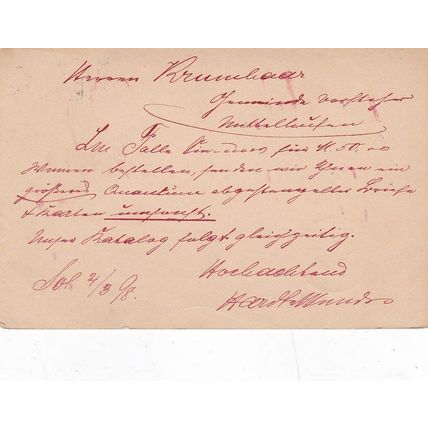 Herren Krumbaar
Gemeinde Vorsteher
Mittelhufen
Im Falle Sie uns für M. 50,00
Waaren bestellen, senden wir Ihnen ein
größeres Quantum abgestempelter Briefe
& Karten umsonst.
Unser Katalog folgt gleichzeitig.
Hochachtend
2/3 98.